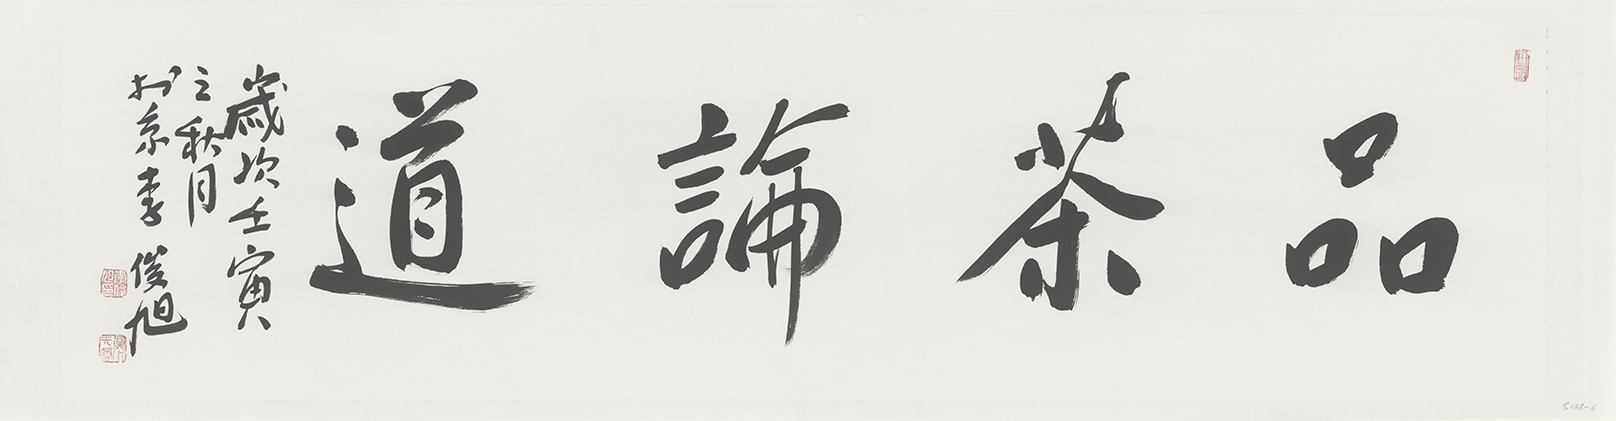 品茶論道
歲次壬寅
之秋月
於京李俊旭
S168-6